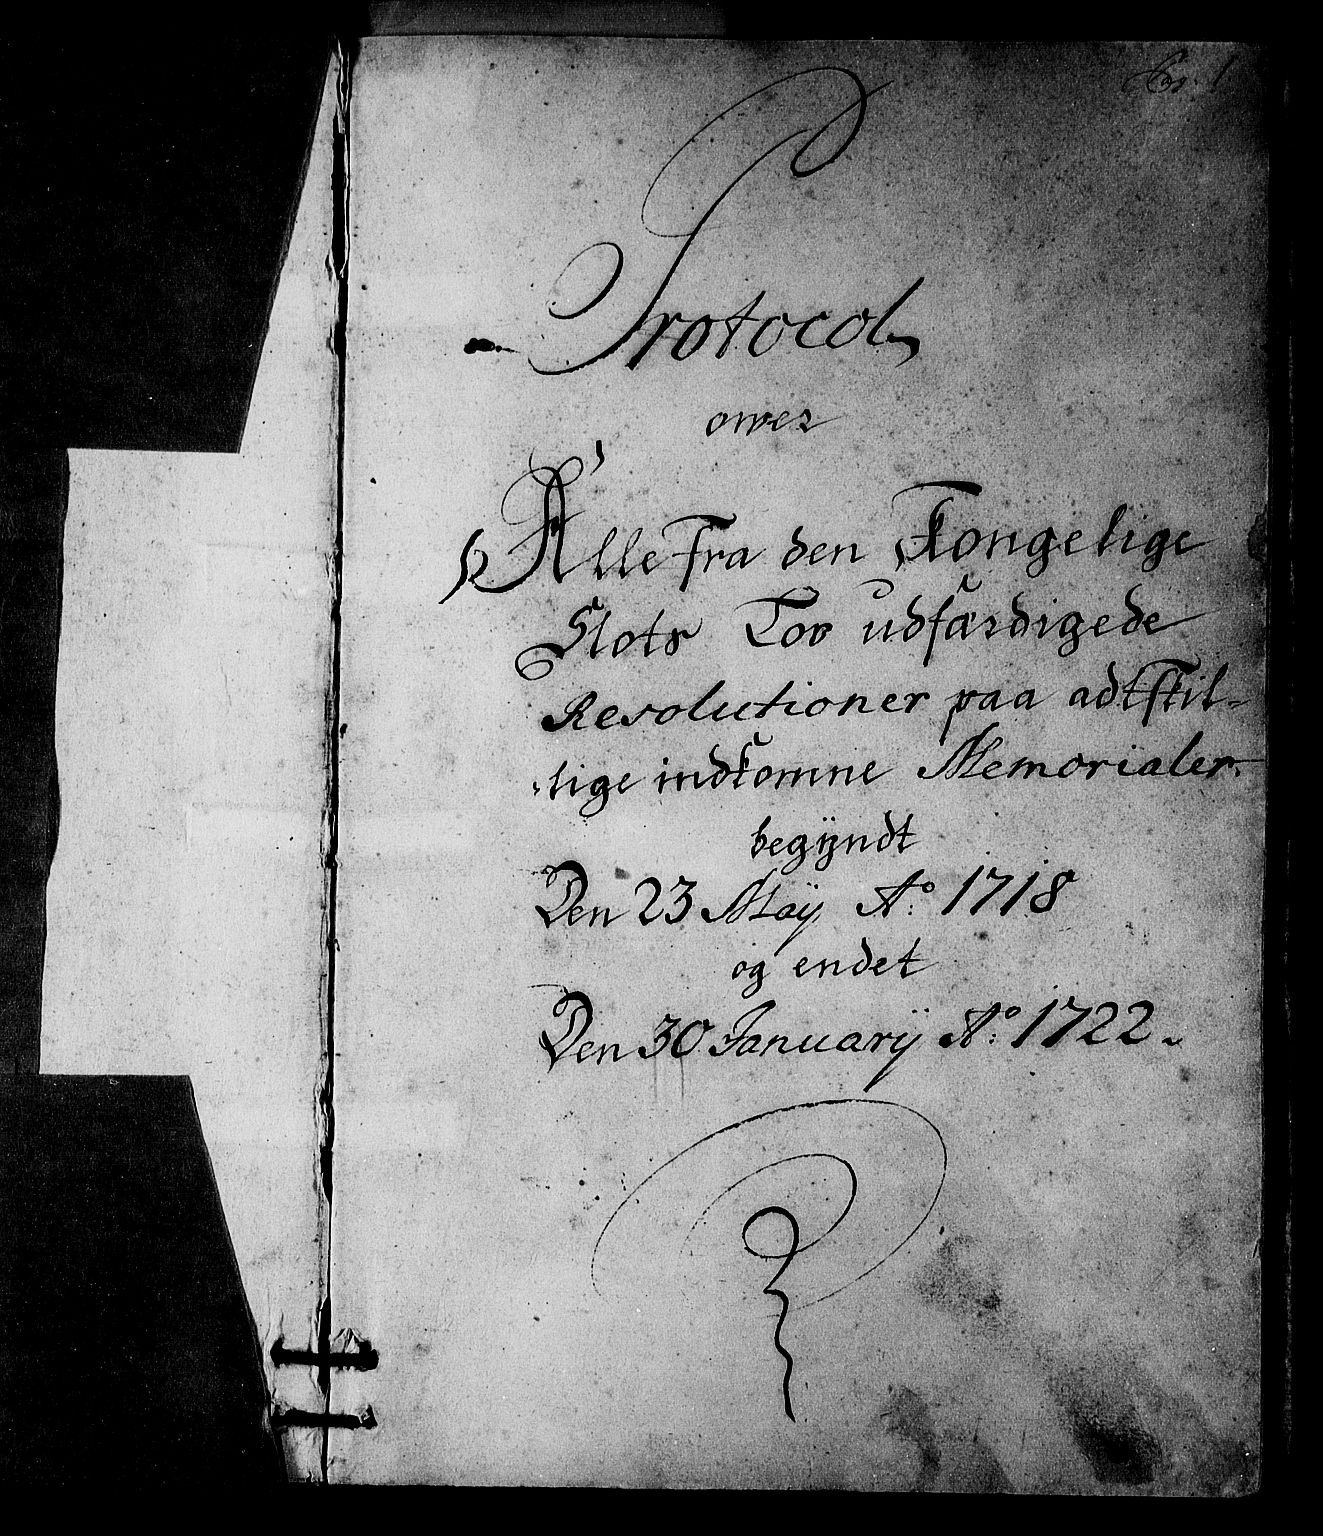 Protocol
over
Alle Fra den Kongelige
Slots Lov udfærdigede
Resolutioner paa adtskil-
lige indkomne Memorialer.
begÿndt
Den 23 Maÿ Aº: 1718
og endet
Den 30 Januarÿ Aº: 1722.